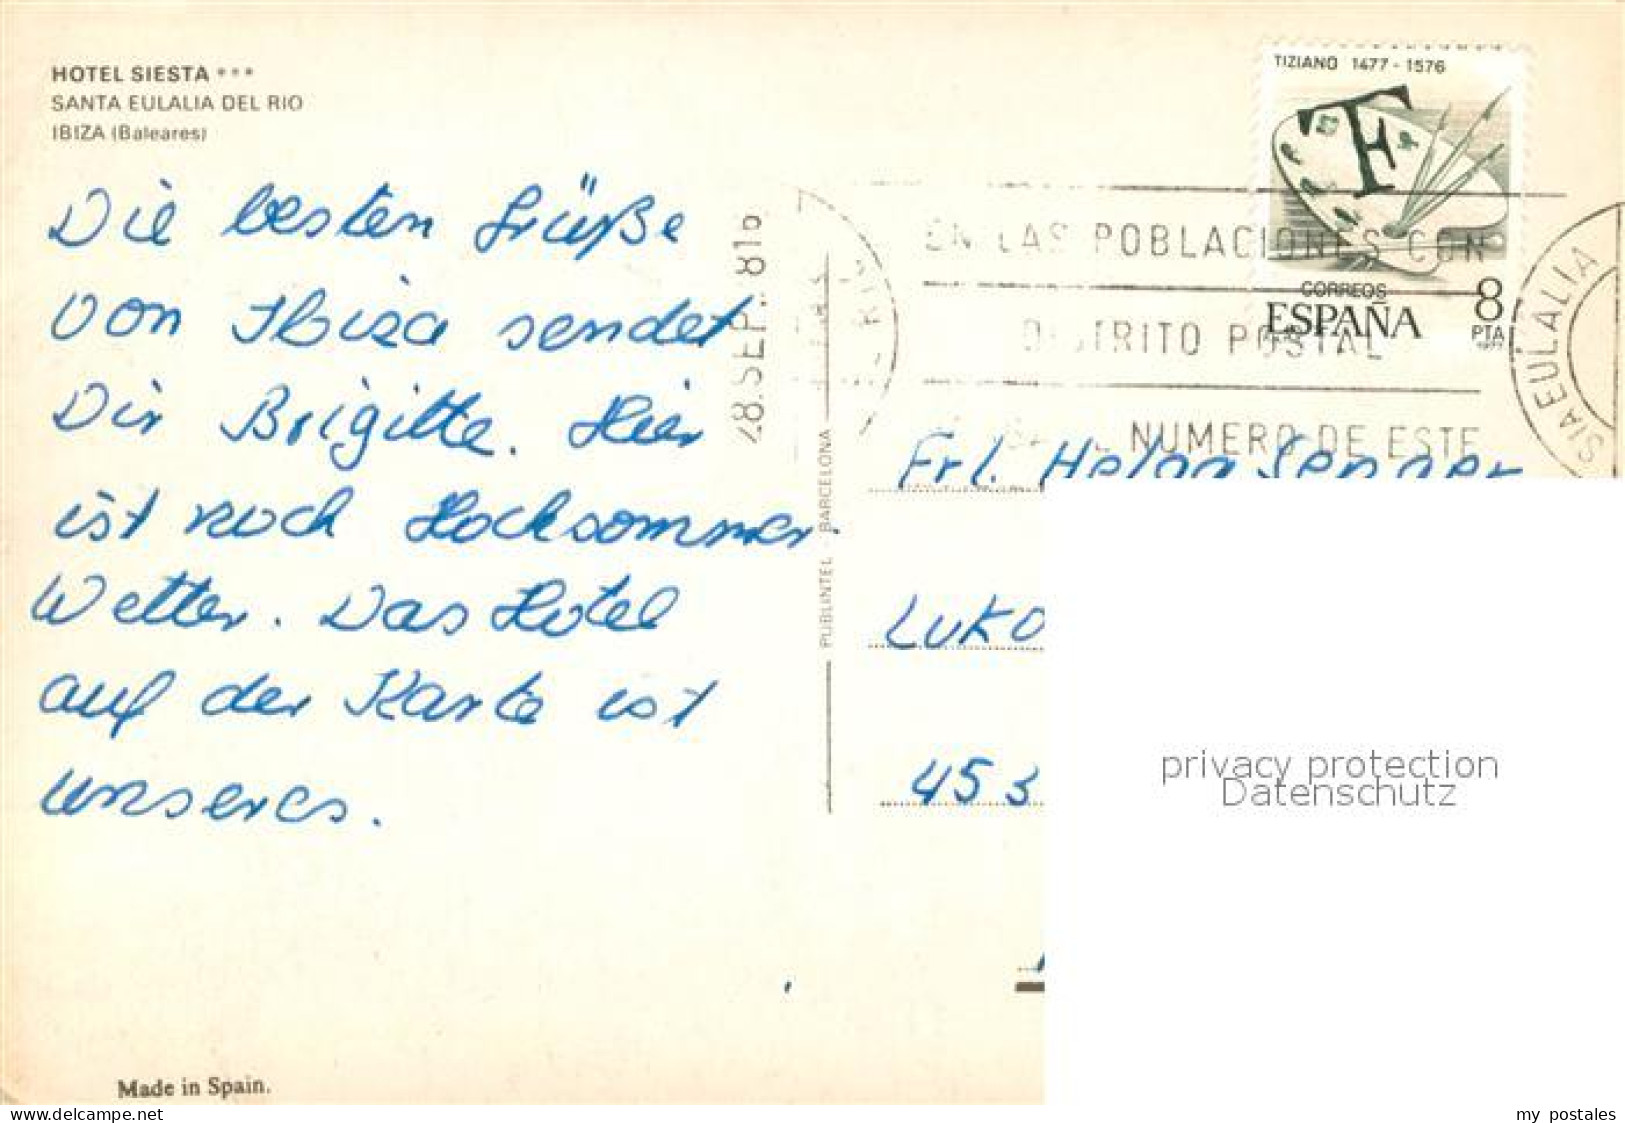 HOTEL SIESTA ***
SANTA EULALIA DEL RIO
IBIZA (Baleares)
Die besten Grüße
von Ibiza sendet
Dir Brigitte. Hier
ist noch Hochsommer
Wetter. Das Hotel
auf der Karte ist
unseres.
Made in Spain.
PUBLINTEL BARCELONA
28.SEP. 81
TIZIANO 1477 - 1576
CORREOS
ESPAÑA
8
PTA
EN LAS POBLACIONES CON
DISTRITO POSTAL
NUMERO DE ESTE
STA EULALIA
Frl.
453
privacy protection
Datenschutz
my postales